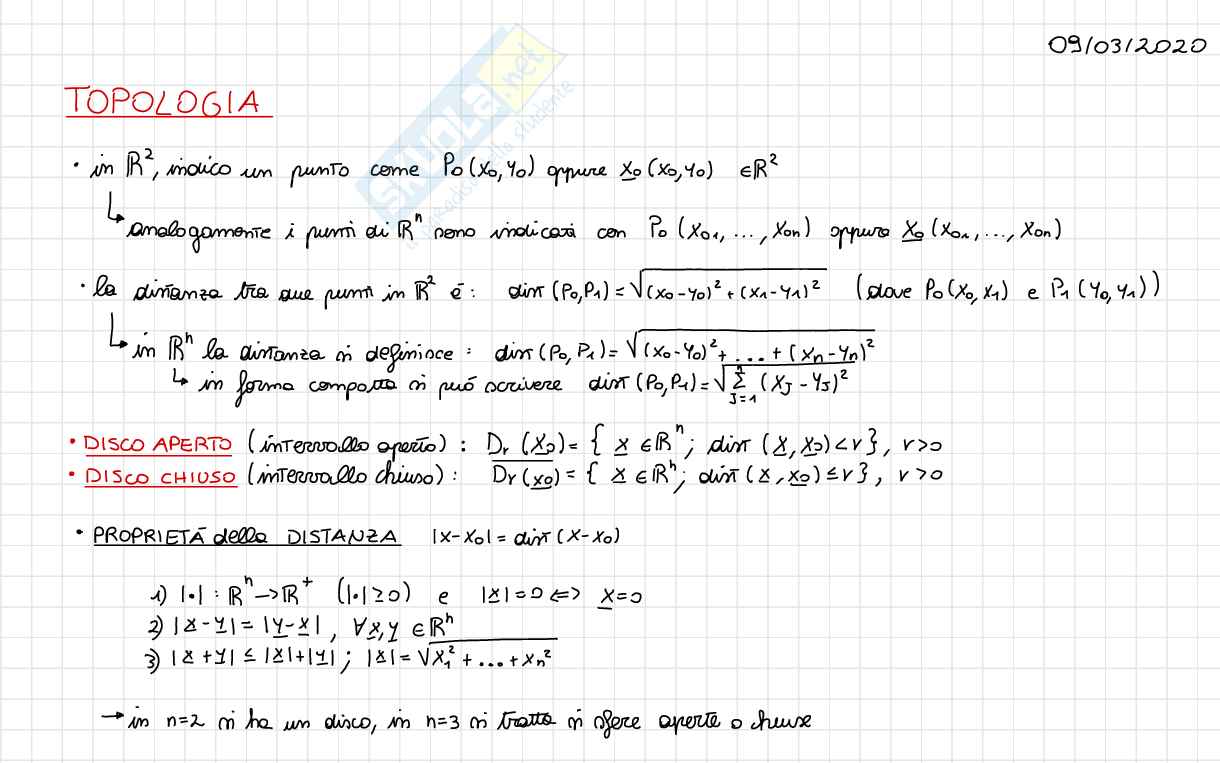 09/03/2020
TOPOLOGIA
• in ℝ², indico un punto come P₀(x₀,y₀) oppure x̲₀(x₀,y₀) ∈ℝ²
↳ analogamente i punti di ℝⁿ sono indicati con P₀(x₀₁,...,x₀ₙ) oppure x̲₀(x₀₁,...,x₀ₙ)
• la distanza tra due punti in ℝ² é: dist(P₀,P₁)=√((x₀-y₀)²+(x₁-y₁)²) (dove P₀(x₀,x₁) e P₁(y₀,y₁))
↳ in ℝⁿ la distanza si definisce: dist(P₀,P₁)=√((x₀-y₀)²+...+(xₙ-yₙ)²)
↳ in forma compatta si può scrivere dist(P₀,P₁)=√(Σⁿ_{J=1} (x_J-y_J)²)
• DISCO APERTO (intervallo aperto): Dᵣ(x̲₀)={ x̲ ∈ℝⁿ; dist(x̲,x̲₀)<r}, r>0
• DISCO CHIUSO (intervallo chiuso): D̅ᵣ(x̲₀)={ x̲ ∈ℝⁿ; dist(x̲,x̲₀)≤r}, r>0
• PROPRIETÀ della DISTANZA |x-x₀|=dist(x-x₀)
1) |•|: ℝⁿ→ℝ⁺ (|•|≥0) e |x̲|=0 ⇔ x̲=0
2) |x̲-y̲|=|y̲-x̲|, ∀x̲,y̲ ∈ℝⁿ
3) |x̲+y̲|≤|x̲|+|y̲|; |x̲|=√(x₁²+...+xₙ²)
→ in n=2 si ha un disco, in n=3 si tratta di sfere aperte o chiuse
SKUOLA.net
il paradiso dello studente